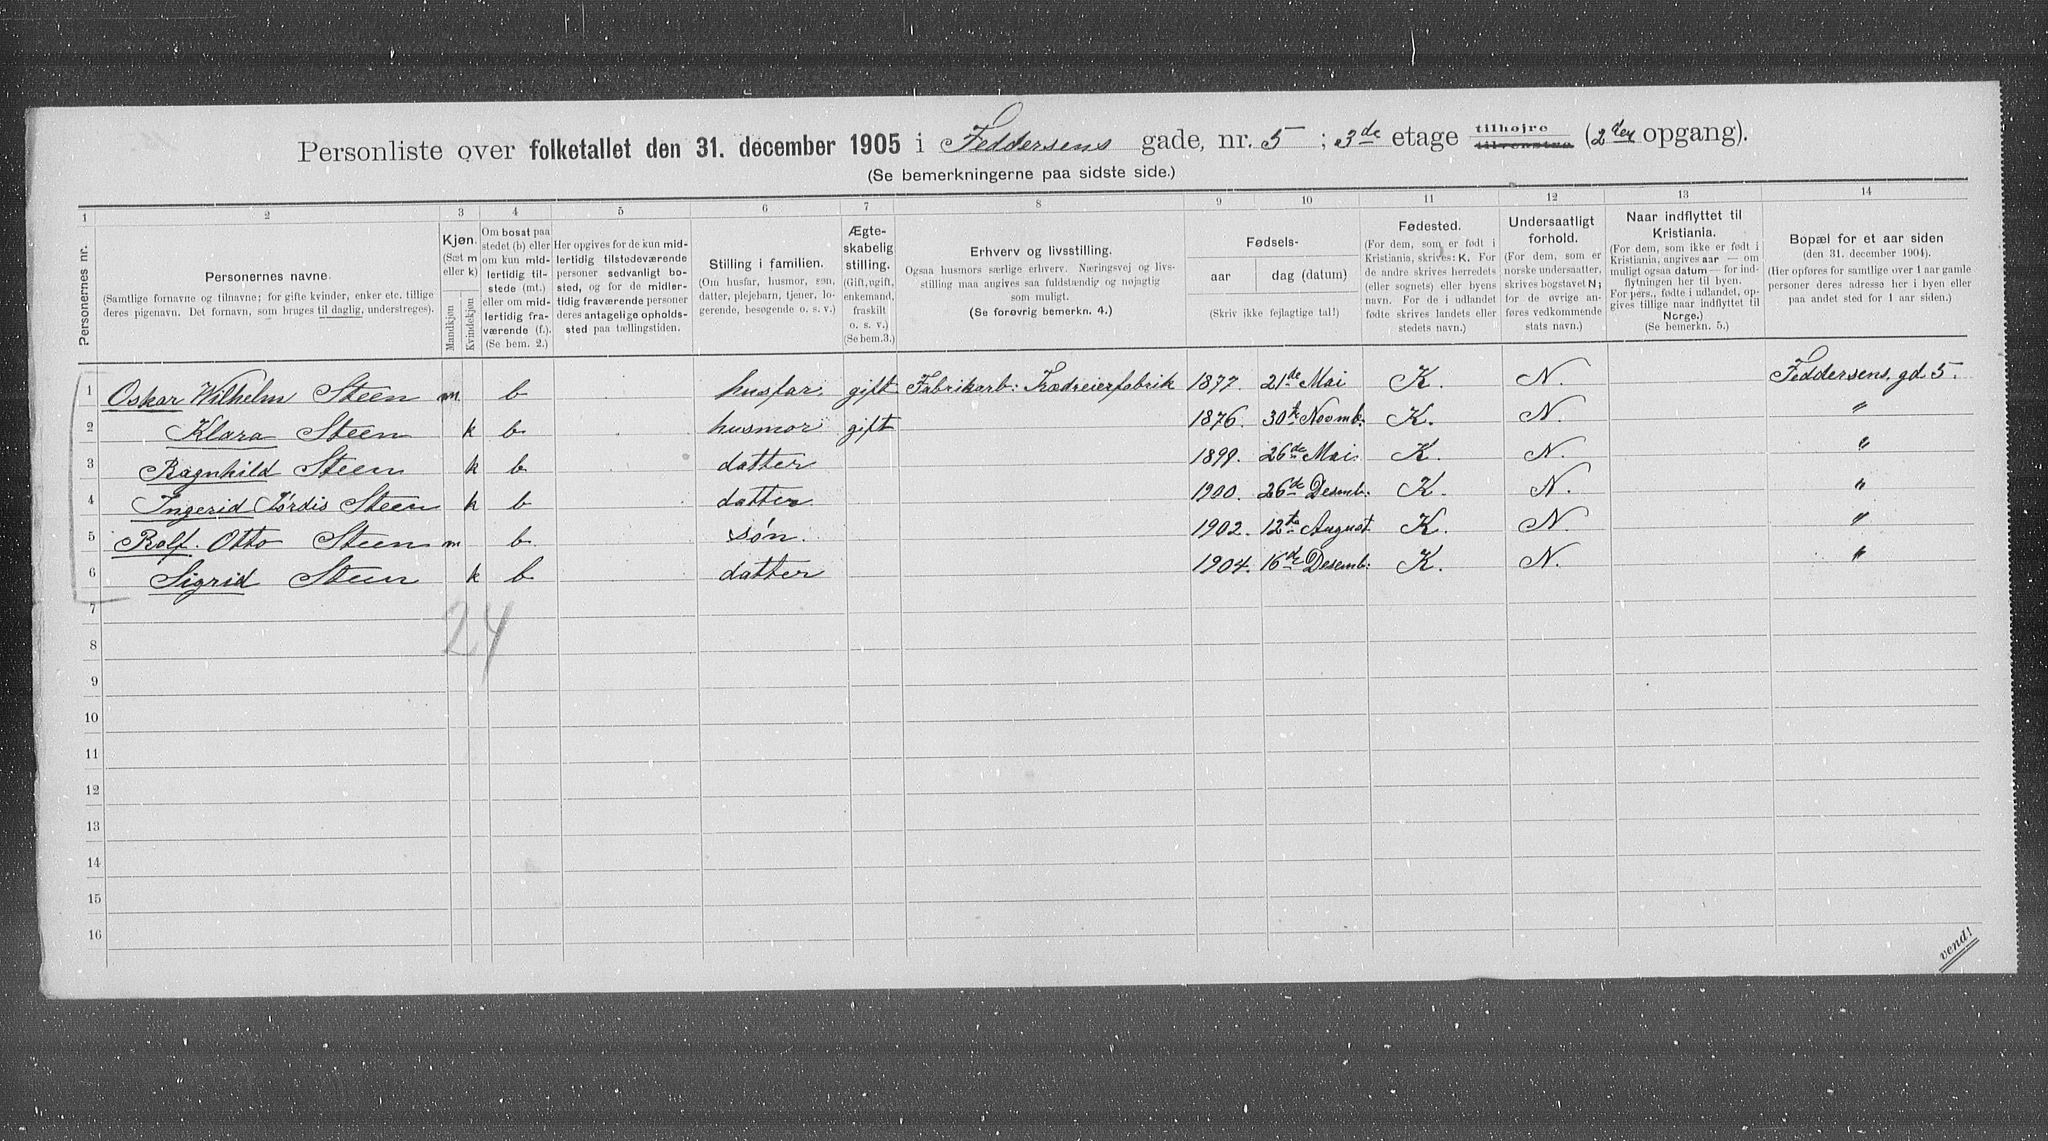 Personliste over folketallet den 31. december 1905 i Feddersens gade, nr. 5 ; 3de etage tilhøjre tilvenstre (2den opgang).
(Se bemerkningerne paa sidste side.)
1 2 3 4 5 6 7 8 9 10 11 12 13 14
Personernes nr.
Personernes navne.
(Samtlige fornavne og tilnavne; for gifte kvinder, enker etc. tillige
deres pigenavn. Det fornavn, som bruges til daglig, understreges).
Kjøn.
(Sæt m
eller k)
Mandkjøn
Kvindekjøn
Om bosat paa
stedet (b) eller
om kun mid-
lertidig til-
stede (mt.)
eller om mid-
lertidig fra-
værende (f.).
(Se bem. 2.)
Her opgives for de kun mid-
lertidig tilstedeværende
personer sedvanligt bo-
sted, og for de midler-
tidig fraværende personer
deres antagelige opholds-
sted paa tællingstiden.
Stilling i familien.
(Om husfar, husmor, søn,
datter, plejebarn, tjener, lo-
gerende, besøgende o. s. v.)
Ægte-
skabelig
stilling.
(Gift, ugift,
enkemand,
fraskilt
o. s. v.)
(Se bem.3.)
Erhverv og livsstilling.
Ogsaa husmors særlige erhverv. Næringsvej og livs-
stilling maa angives saa fuldstændig og nøjagtig
som muligt.
(Se forøvrig bemerkn. 4.)
Fødsels-
aar dag (datum)
(Skriv ikke fejlagtige tal!)
Fødested.
(For dem, som er født i
Kristiania, skrives: K. For
de andre skrives herredets
(eller sognets) eller byens
navn. For de i udlandet
fødte skrives landets eller
stedets navn.)
Undersaatligt
forhold.
(For dem, som er
norske undersaatter,
skrives bogstavet N;
for de øvrige an-
føres vedkommende
stats navn.)
Naar indflyttet til
Kristiania.
(For dem, som ikke er født i
Kristiania, angives aar — om
muligt ogsaa datum — for ind-
flytningen her til byen.
For pers., fødte i udlandet, op-
gives tillige naar indflyttet til
Norge.)
(Se bemerkn. 5.)
Bopæl for et aar siden
(den 31. december 1904).
(Her opføres for samtlige over 1 aar gamle
personer deres adresse her i byen eller
paa andet sted for 1 aar siden.)
1 Oskar Wilhelm Steen m. b husfar. gift Fabrikarb: Trædreierfabrik 1877. 21de Mai K. N. Feddersens. gd 5.
2 Klara Steen k b husmor gift 1876. 30te Novmb. K. N. "
3 Ragnhild Steen k b datter 1899. 26de Mai. K. N. "
4 Ingerid Hjördis Steen k b datter 1900. 26de Desemb. K. N. "
5 Rolf. Otto Steen m b. søn. 1902. 12te August K. N. "
6 Sigrid Steen k b datter 1904. 16de Desemb: K. N. "
24
7
8
9
10
11
12
13
14
15
16
vend!